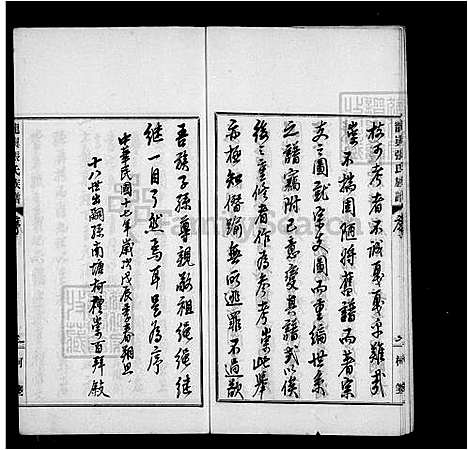 於可考者不誠戛戛乎難哉
崇不揣固陋將舊譜而著宗
支之圖就宗支圖而重編世系
之譜竊附己意變其譜式以俟
後之重修者作為參考崇此舉
亦極知僭踰無所逃罪不過欲
吾族子孫尊親敬祖繩繩繼
繼一目了然焉耳是為序
中華民國十七年歲次戊辰季春朔旦
十八世出嗣孫南塘柯禮崇百拜敬
FamilySearch